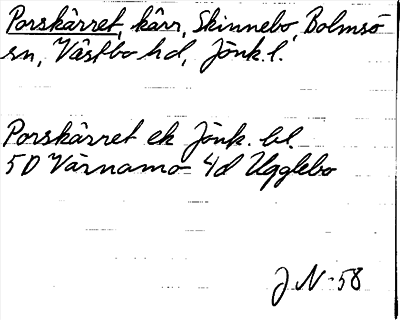 Porskärret, kärr, Skinnebo, Bolmsö
sn, Västbo hd, Jönk. l.
Porskärret ek Jönk. bl.
5D Värnamo 4d Ugglebo
J.N-58